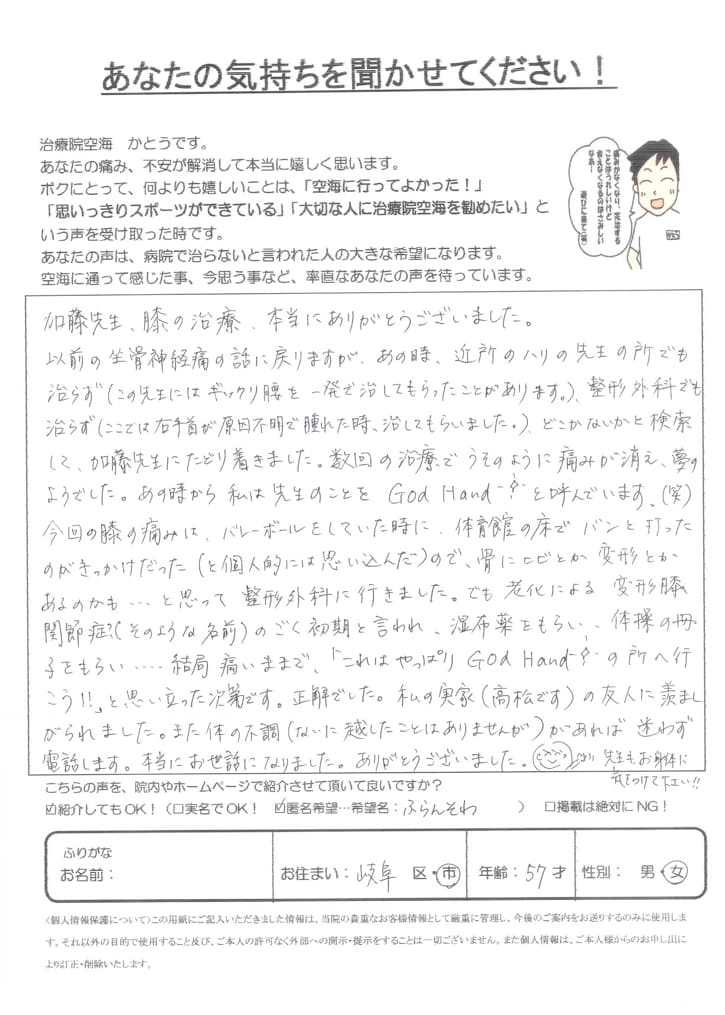 あなたの気持ちを聞かせてください！
治療院空海　かとうです。
あなたの痛み、不安が解消して本当に嬉しく思います。
ボクにとって、何よりも嬉しいことは、「空海に行ってよかった！」
「思いっきりスポーツができている」「大切な人に治療院空海を勧めたい」と
いう声を受け取った時です。
あなたの声は、病院で治らないと言われた人の大きな希望になります。
空海に通って感じた事、今思う事など、率直なあなたの声を待っています。
痛みがなくなり、完治する
ことはうれしいけど
会えなくなるのはさみしい
なあー
遊びに来て(笑)
加藤先生、膝の治療、本当にありがとうございました。
以前の坐骨神経痛の話に戻りますが、あの時、近所のハリの先生の所でも
治らず(この先生にはギックリ腰を一発で治してもらったことがあります。)、整形外科でも
治らず(ここでは右手首が原因不明で腫れた時、治してもらいました。)、どこかないかと検索
して、加藤先生にたどり着きました。数回の治療でうそのように痛みが消え、夢の
ようでした。あの時から私は先生のことを God Hand と呼んでいます。(笑)
今回の膝の痛みは、バレーボールをしていた時に、体育館の床でバンと打った
のがきっかけだった(と個人的には思い込んだ)ので、骨にヒビとか変形とか
あるのかも…と思って整形外科に行きました。でも老化による変形膝
関節症?(そのような名前)のごく初期と言われ、湿布薬をもらい、体操の冊
子をもらい….結局痛いままで、「これはやっぱり God Hand の所へ行
こう!!」と思い立った次第です。正解でした。私の実家(高松です)の友人に羨まし
がられました。また体の不調(ないに越したことはありませんが)があれば迷わず
電話します。本当にお世話になりました。ありがとうございました。先生もお身体に
気をつけて下さい!!
こちらの声を、院内やホームページで紹介させて頂いて良いですか？
☑紹介してもOK！（□実名でOK！　☑匿名希望…希望名：ふらんそわ　）　□掲載は絶対にNG！
ふりがな
お名前：　お住まい：岐阜　区・市　年齢：57才　性別：　男・女
〈個人情報保護について〉この用紙にご記入いただきました情報は、当院の貴重なお客様情報として厳重に管理し、今後のご案内をお送りするのみに使用しま
す。それ以外の目的で使用すること及び、ご本人の許可なく外部への開示・提示をすることは一切ございません。また個人情報は、ご本人様からのお申し出に
より訂正・削除いたします。